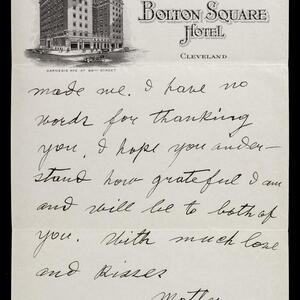 BOLTON SQUARE
HOTEL
CLEVELAND
CARNEGIE AVE. AT 89TH STREET
made me. I have no
words for thanking
you. I hope you under-
stand how grateful I am
and will be to both of
you. With much love
and Kisses